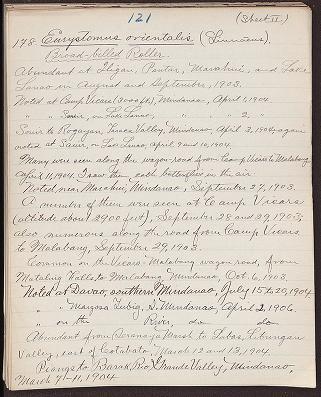 121
(Sheet II.)
178. Eurystomus orientalis (Linnaeus).
Broad-billed Roller.
Abundant at Iligan, Pantar, Marahui, and Lake
Lanao in August and September, 1903.
Noted at Camp Vicars (3000 ft.), Mindanao, April 1, 1904.
" " Sauir, on Lake Lanao, " " 2, "
Sauir to Rogayan, Taraca Valley, Mindanao, April 3, 1904, again
noted at Sauir, on Lake Lanao, April 9 and 10, 1904.
Many were seen along the wagon road from Camp Vicars to Malabang,
April 11, 1904. I saw them catch butterflies in the air.
Noted near Marahui, Mindanao, September 27, 1903.
A number of them were seen at Camp Vicars
(altitude about 2900 feet), September 28 and 29, 1903;
also numerous along the road from Camp Vicars
to Malabang, September 29, 1903.
Common on the Vicars-Malabang wagon road, from
Mataling Falls to Malabang, Mindanao, Oct. 6, 1903.
Noted at Davao, southern Mindanao, July 15 to 20, 1904
" " Tubig, S. Mindanao, April 2, 1906.
" on the River, do do
Abundant from Marsh to Libungan
Valley, east of Cotabato, March 12 and 13, 1904.
Piang to Rio Grande Valley, Mindanao,
March 7-11, 1904